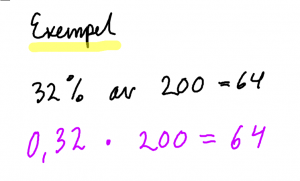 Exempel
32% av 200 = 64
0,32 · 200 = 64